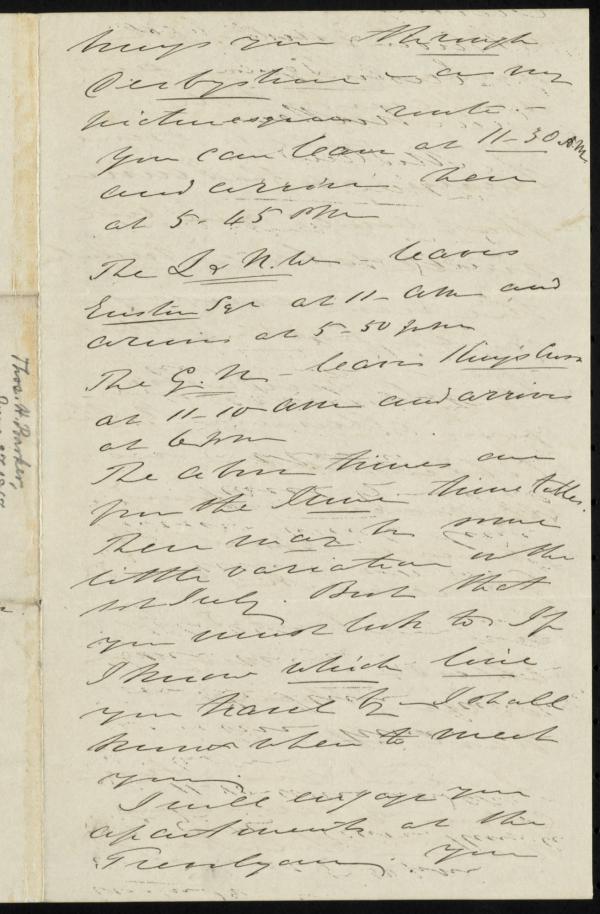 brings you through
Derbyshire - a very
picturesque route -
You can leave at 11-30 A.M.
and arrive here
at 5-45 PM
The L & N.W - leaves
Euston Sqr at 11- am and
arrives at 5-50 pm
The G. N leaves King's Cross
at 11-10 am and arrives
at 6 pm
The above times are
from the June time tables.
There may be some
little variation in the
for July. But that
you must look to. If
I know which line
you travel by - I shall
know when to meet
you.
I will engage you
apartments at the
You
Thos. H. Parker,